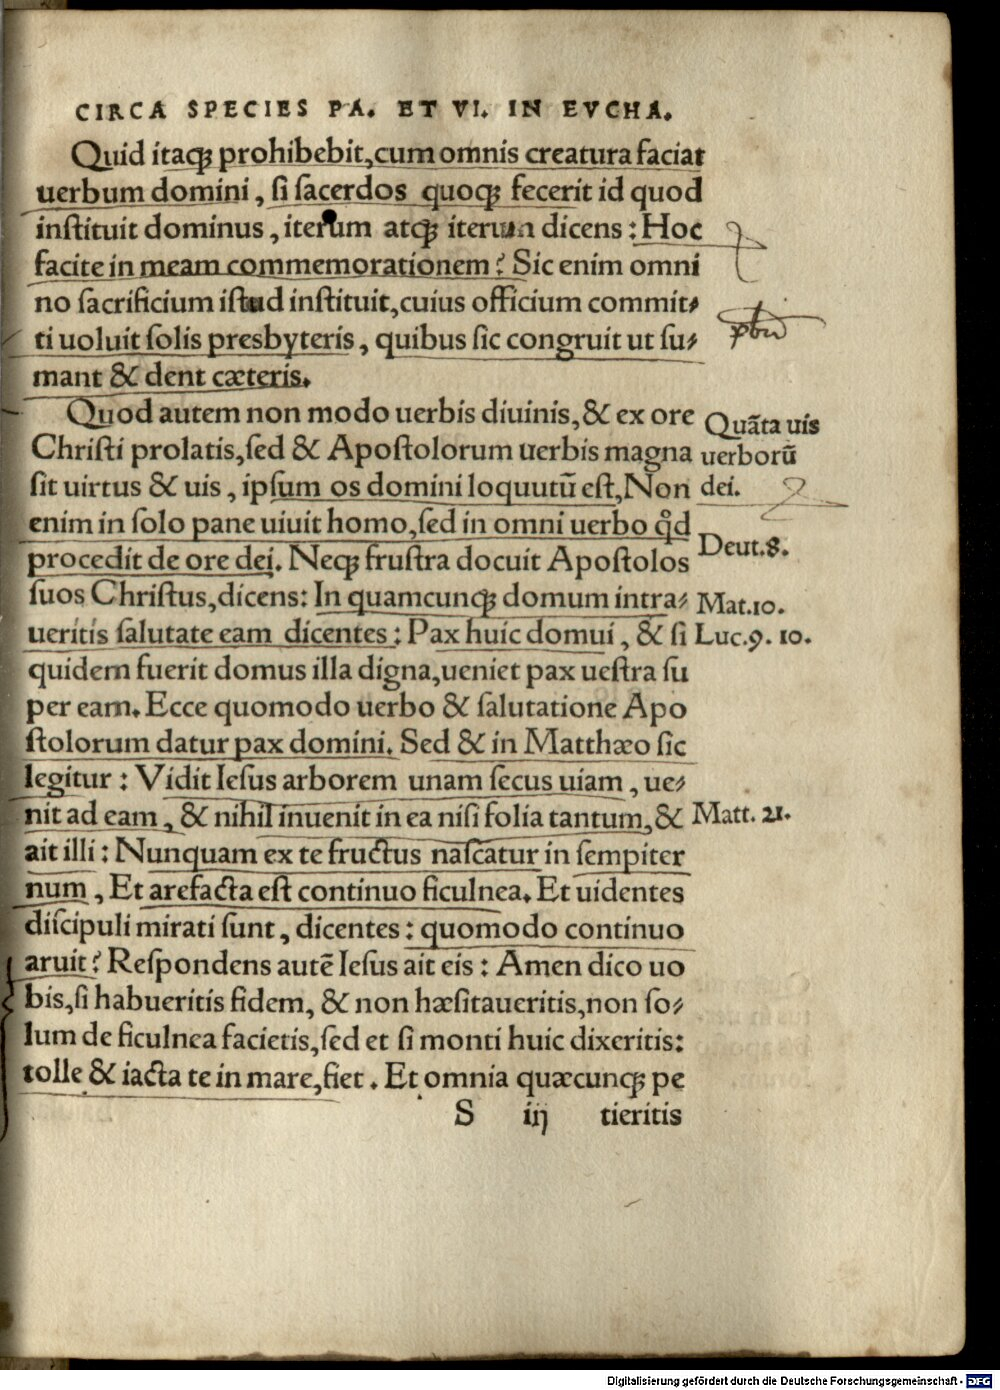 CIRCA SPECIES PA. ET VI. IN EVCHA.
Quid itaqꝫ prohibebit,cum omnis creatura faciat
uerbum domini, ſi ſacerdos quoqꝫ fecerit id quod
inſtituit dominus, iterum atqꝫ iterum dicens: Hoc
facite in meam commemorationem? Sic enim omni
no ſacrificium iſtud inſtituit,cuius officium commit⸗
ti uoluit ſolis presbyteris, quibus ſic congruit ut ſu⸗
mant & dent cæteris.
Quod autem non modo uerbis diuinis,& ex ore
Quãta uis
Chriſti prolatis,ſed & Apoſtolorum uerbis magna
uerborũ
ſit uirtus & uis, ipſum os domini loquutũ eſt,Non
dei.
enim in ſolo pane uiuit homo,ſed in omni uerbo qd̛
procedit de ore dei. Neqꝫ fruſtra docuit Apoſtolos
Deut.8.
ſuos Chriſtus,dicens: In quamcunqꝫ domum intra⸗
Mat.10.
ueritis ſalutate eam dicentes: Pax huic domui, & ſi
Luc.9. 10.
quidem fuerit domus illa digna,ueniet pax ueſtra ſu
per eam. Ecce quomodo uerbo & ſalutatione Apo
ſtolorum datur pax domini. Sed & in Matthæo ſic
legitur: Vidit Ieſus arborem unam ſecus uiam, ue⸗
nit ad eam, & nihil inuenit in ea niſi folia tantum,&
Matt. 21.
ait illi: Nunquam ex te fructus naſcatur in ſempiter
num, Et arefacta eſt continuo ficulnea. Et uidentes
diſcipuli mirati ſunt, dicentes: quomodo continuo
aruit? Reſpondens autẽ Ieſus ait eis: Amen dico uo
bis,ſi habueritis fidem, & non hæſitaueritis,non ſo⸗
lum de ficulnea facietis,ſed et ſi monti huic dixeritis:
tolle & iacta te in mare,fiet. Et omnia quæcunqꝫ pe
S iij tieritis
Digitalisierung gefördert durch die Deutsche Forschungsgemeinschaft - DFG